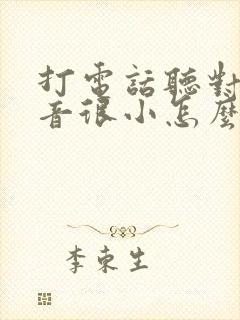 打電話聽對
音很小怎麼
李東生